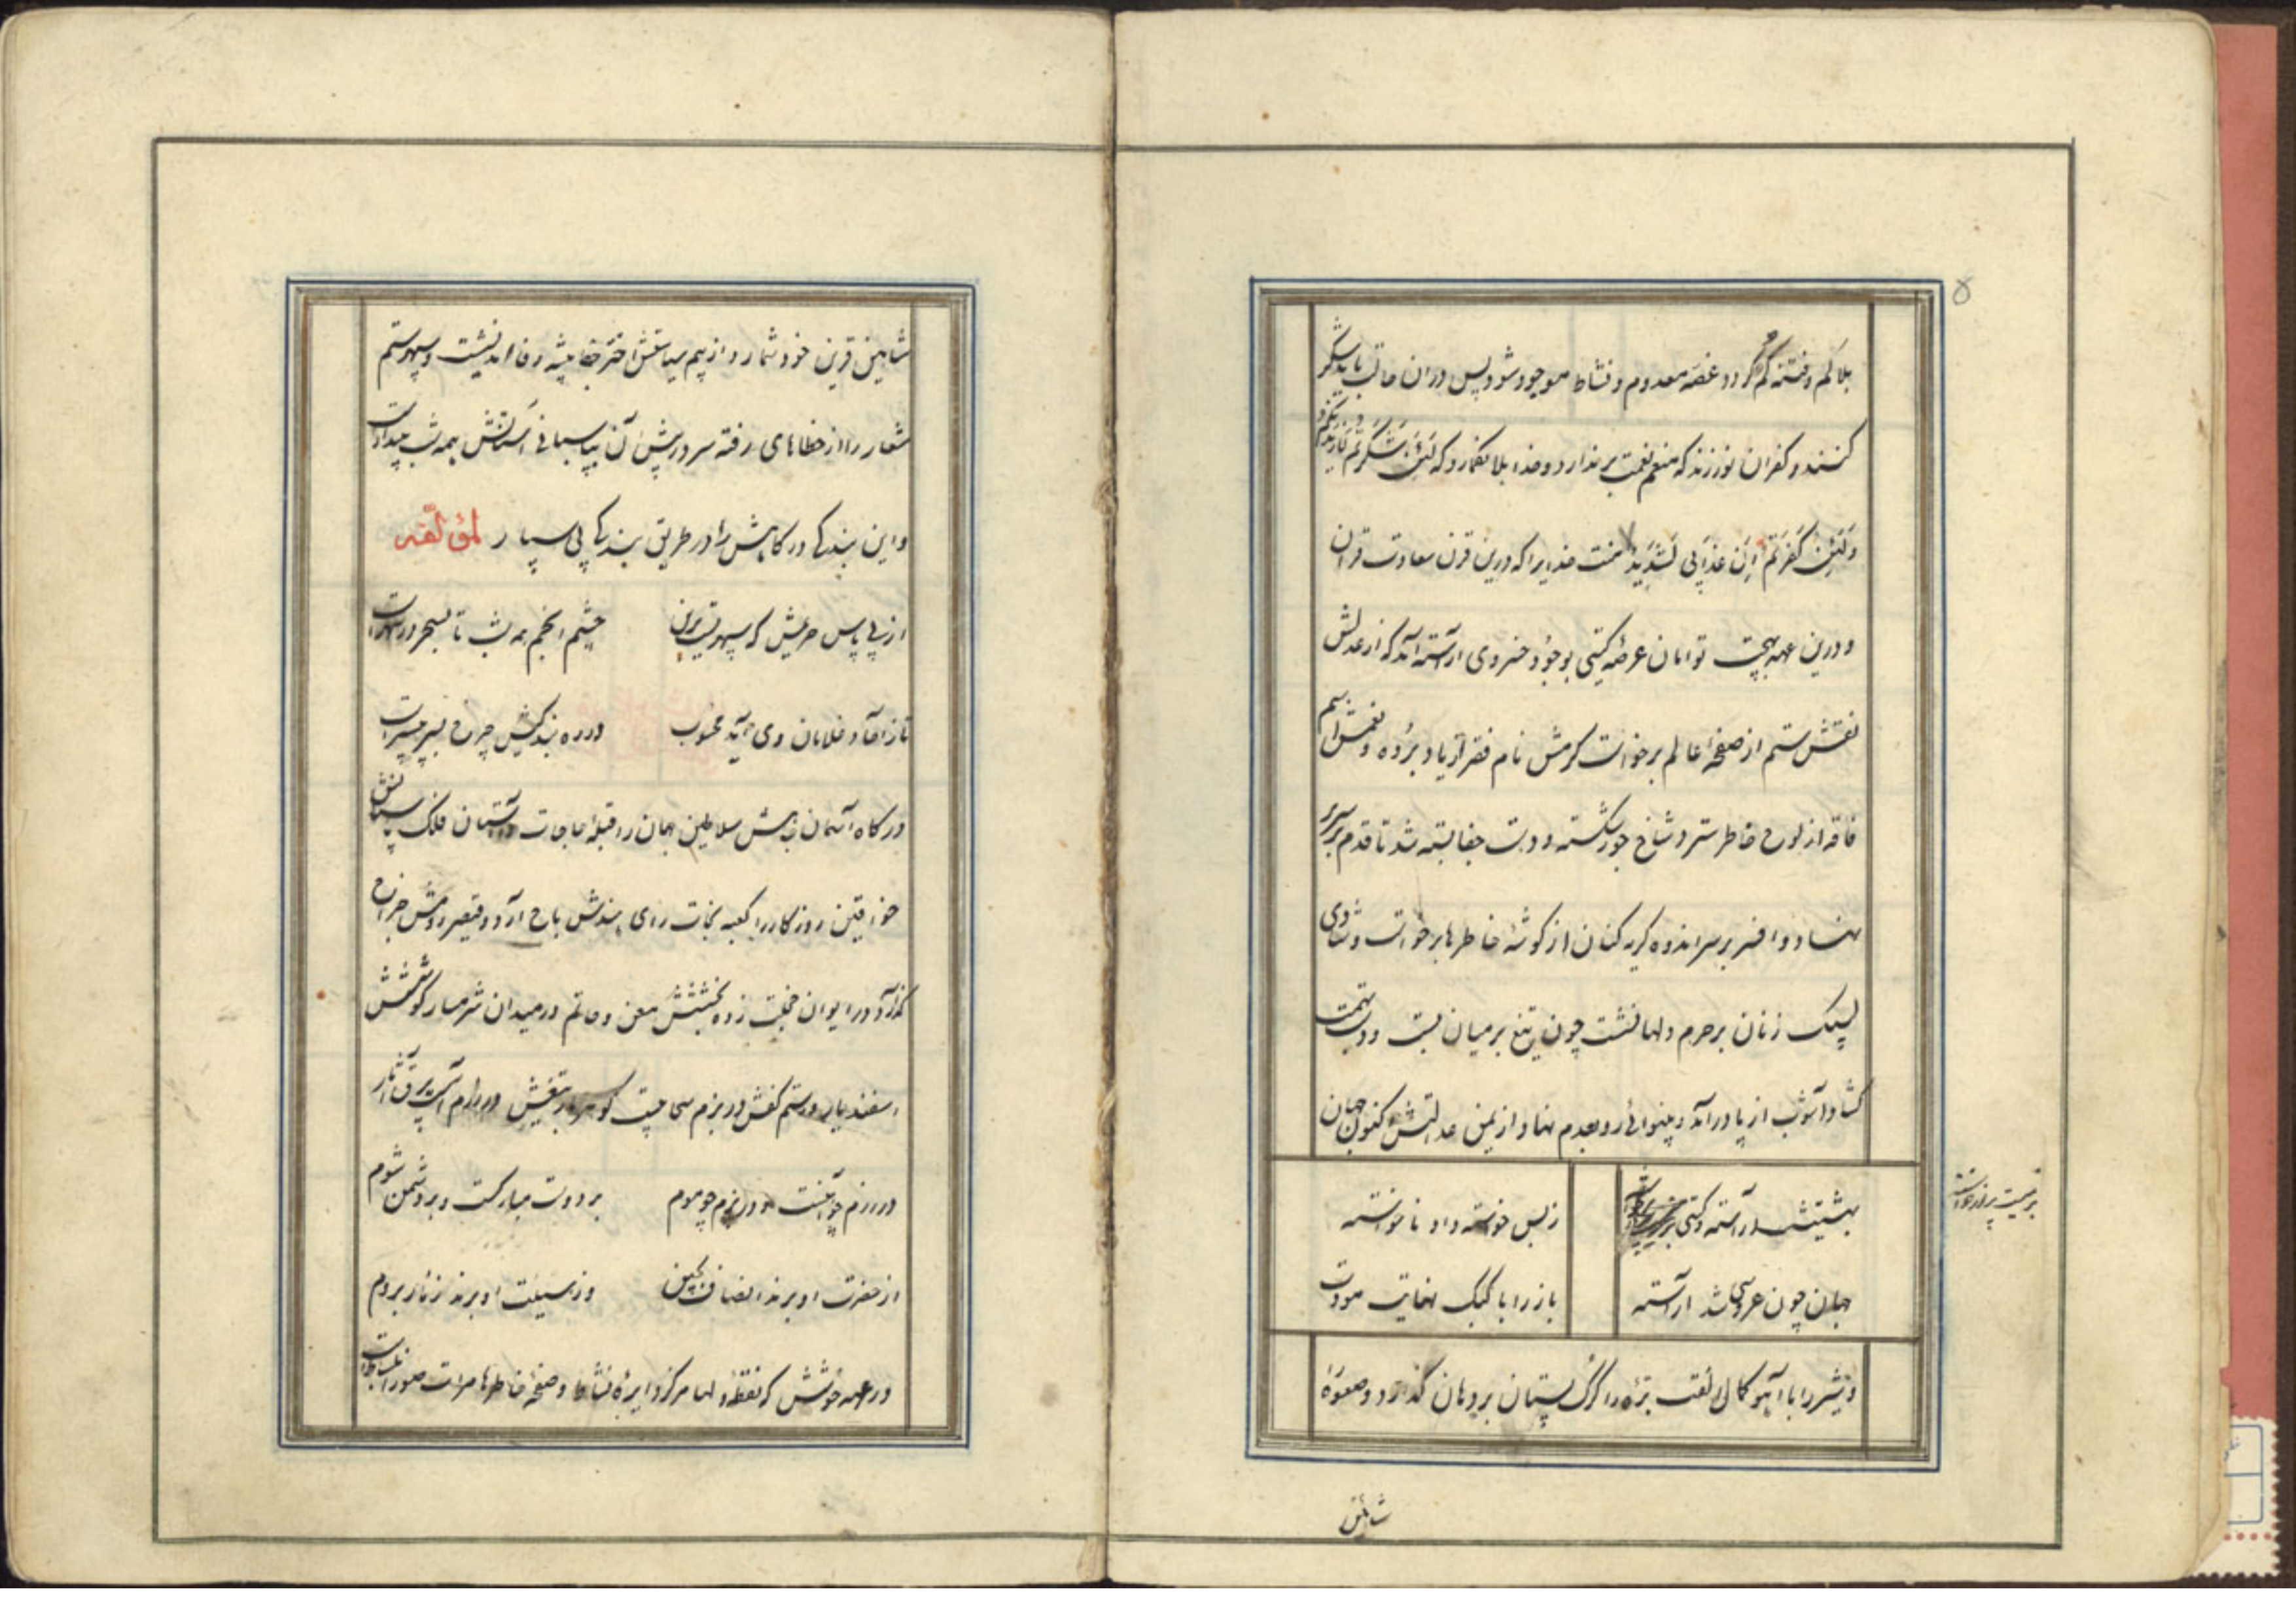 ۵
بلا کم و فتنه گم گردد و غصه معدوم و نشاط موجود شود پس در ان حالت باید شکر
کنند و کفران نورزند که منعم نعمت برندارد و خدا بلا نگمارد که لَئِن شَکَرتُم لَازیدَنَّکُم
وَلَئِن کَفَرتُم اِنَّ عَذابی لَشَدید منت خدایرا که درین قرن سعادت قران
و درین عهد بهجت توامان عرصه کیتی بوجود خسروی اراسته آمد که از عدلش
نقش ستم از صفحه عالم برخواست کرمش نام فقر از یاد برده و نعمش اسم
فاقه از لوح خاطر سترد شاخ جور شکسته و دست جفا بسته شد تا قدم بر سریر
نهاد و افسر بر سر اندوه کریه کنان از کوشه خاطرها برخواست و شادی
لبیک زنان بر حرم دلها نشست چون تیغ بر میان بست و دست همت
کشاد آشوب از پا درآمد و بینوائی رو بعدم نهاد و از یمن عدالتش کنون جهان
بهشتیست اراسته و کیتی
ز بس خواسته داد ناخواسته
جهان چون عروسی شد اراسته
باز را با کبک نهایت مودت
و شیر را با آهو کمال الفت بره را کرک پستان بر دهان گذارد و صعوه
شاهین
شاهین قرین خود شمارد از بیم سیاستش اختر جفا پیشه وفا اندیشت و سپهر ستم
شعار را از خطاهای رفته سر در پیش آن بپاسبانی آستانش همه شب بیدارست
و این بندکی درکاهش را در طریق بندکی پی سپار لمؤلّفه
از پی پاس حریمش که سپهریست برین
چشم انجم همه شب تا بسحر در سهرست
تا ز احاد غلامان وی آید محسوب
در ره بندکیش چرخ بسر پی سپرست
درکاه آسمان جاهش سلاطین جهان را قبله حاجات و آستان فلک پاسبانش
خواقین روزکار را کعبه نجات رای هندش باج آرد و قیصر رومش خراج
گذارد در ایوان خجلت زده بخششش معن و حاتم در میدان شرمسار کوششش
اسفندیار و رستم کفش در بزم سحابیست کوهربار تیغش در رزم آتش برق آثار
در رزم چو آهنست و در بزم چو موم
بر دوست مبارکست و بر دشمن شوم
از حضرت او برند انصاف بچین
وز هیبت او برند زنار بروم
در عهد خوشش که نقطه دلها مرکز دایره نشاط و صفحه خاطرها مرات صور انبساطست